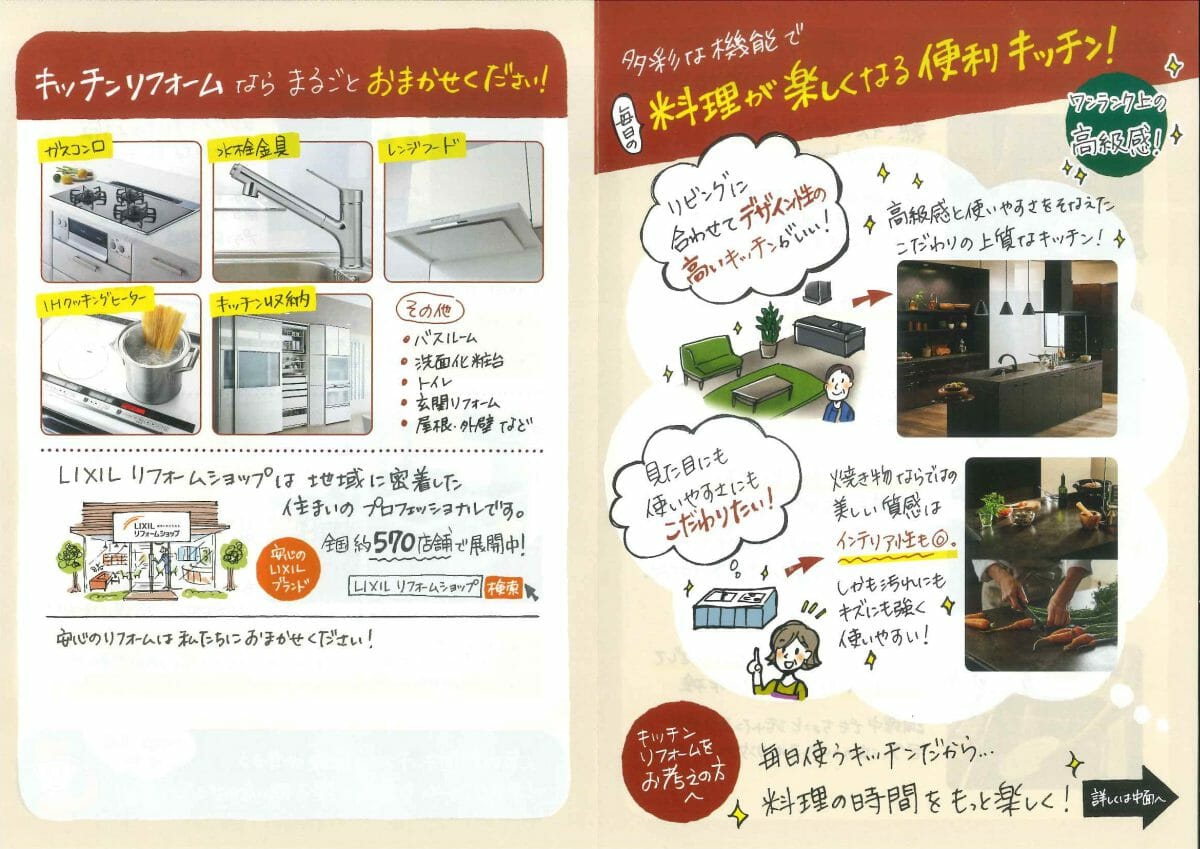 キッチンリフォーム なら まるごと おまかせください!
ガスコンロ
水栓金具
レンジフード
IHクッキングヒーター
キッチン収納
その他
• バスルーム
• 洗面化粧台
• トイレ
• 玄関リフォーム
• 屋根・外壁 など
LIXIL リフォームショップは 地域に密着した
住まいの プロフェッショナルです。
LIXIL
リフォームショップ
安心の
LIXIL
ブランド
全国 約570店舗で展開中!
LIXIL リフォームショップ 検索
安心のリフォームは 私たちに おまかせください!
多彩な機能で
毎日の
料理が楽しくなる便利キッチン!
ワンランク上の
高級感!
リビングに
合わせてデザイン性の
高いキッチンがいい!
高級感と使いやすさをそなえた
こだわりの上質なキッチン!
見た目にも
使いやすさにも
こだわりたい!
焼き物ならではの
美しい質感は
インテリア性も◎。
しかも汚れにも
キズにも強く
使いやすい!
キッチン
リフォームを
お考えの方
へ
毎日使うキッチンだから…
料理の時間をもっと楽しく!
詳しくは中面へ